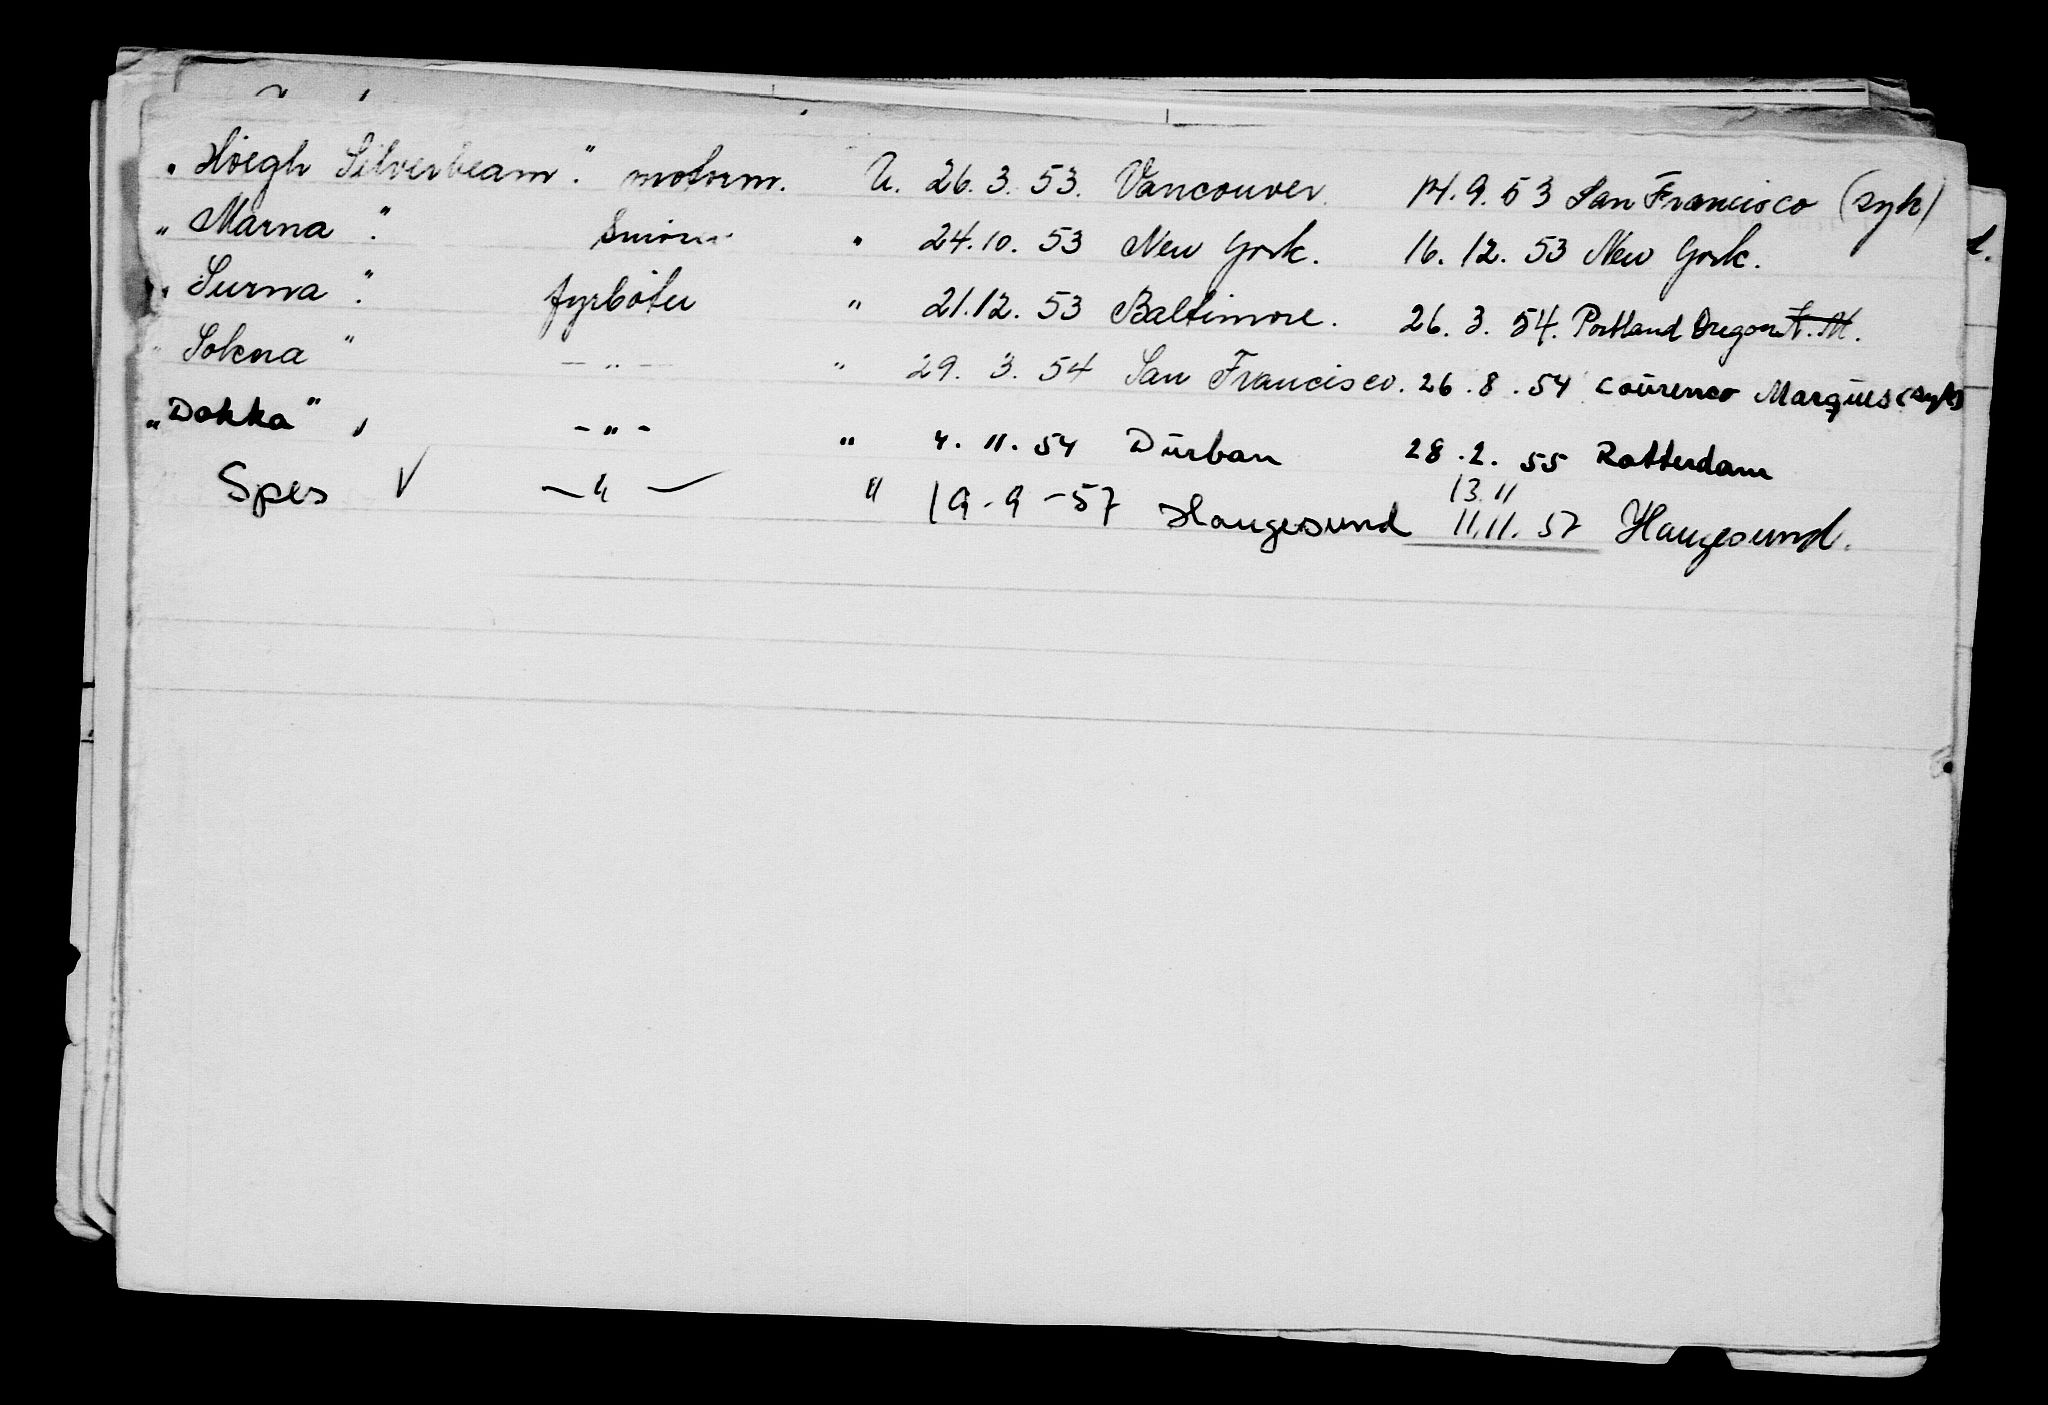 "Höegh Silverbeam". motorm. U. 26.3.53. Vancouver. 14.9.53 San Francisco (syk)
"Marna". Smöre " 24.10.53 New York. 16.12.53 New York.
"Surna". fyrböter " 21.12.53 Baltimore. 26.3.54. Portland Oregon N.M.
"Sokna" - " - " 29.3.54 San Francisco. 26.8.54 Lourenco Marques (syk)
"Dokka", - " - " 4.11.54 Durban 28.2.55 Rotterdam
13.11
Spes √ - " - " 19-9-57 Haugesund 11.11.57 Haugesund.